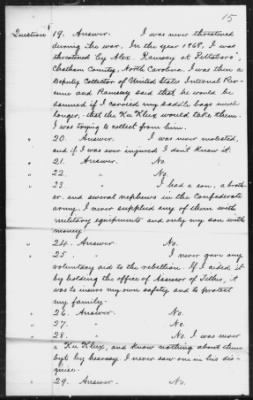 15
Question 19. Answer. I was never threatened
during the war. In the year 1868, I was
threatened by Alex. Ramsey at Pittsboro',
Chatham County, North Carolina. I was then a
Deputy Collector of United States Internal Reve-
nue and Ramsey said that he would be
damned if I carried my saddle bags much
longer, that the Ku Klux would take them.
I was trying to collect from him.
" 20. Answer. I was never molested,
and if I was ever injured I don't know it.
" 21. Answer. No.
" 22. " No.
" 23. " I had a son, a broth-
er, and several nephews in the Confederate
army. I never supplied any of them with
military equipments and only my son with
money.
" 24. Answer. No.
" 25. " I never gave any
voluntary aid to the rebellion. If I aided it
by holding the office of Assessor of Tithes, it
was to insure my own safety and to protect
my family.
" 26. Answer. No.
" 27. " No.
" 28. " No. I was never
a Ku Klux, and know nothing about them
but by hearsay. I never saw one in his dis-
guise.
" 29. Answer. No.